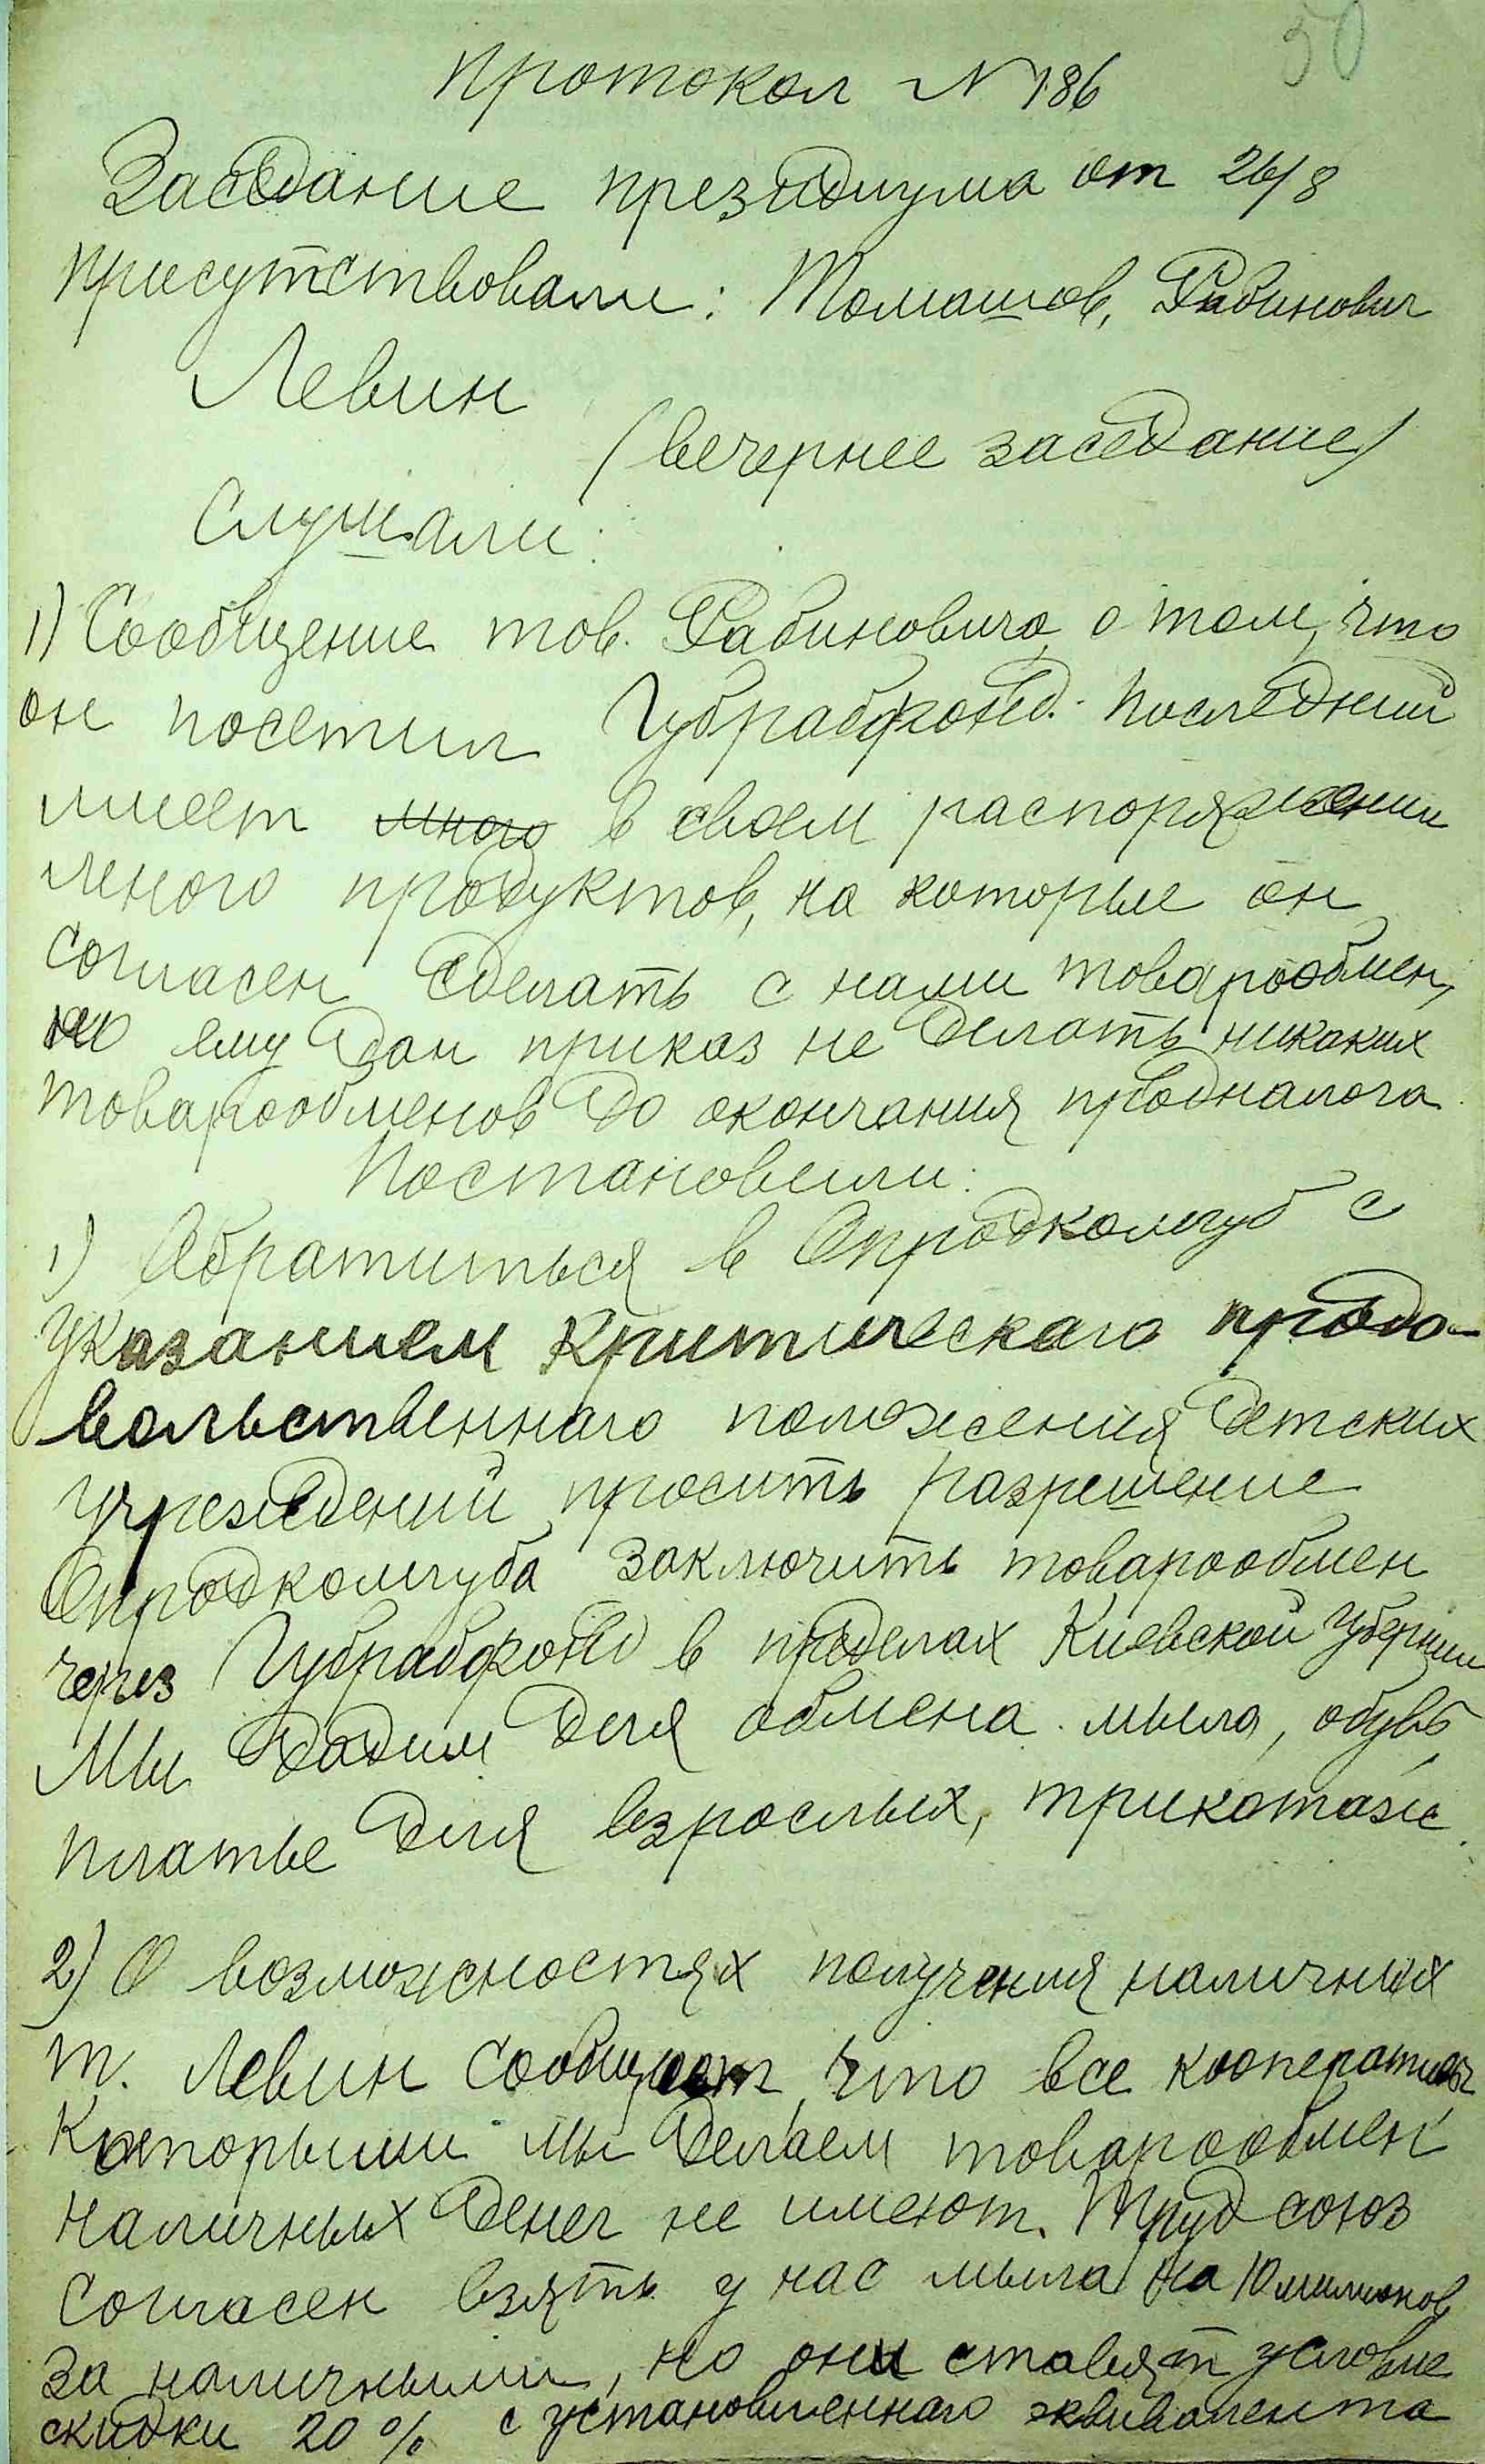 50
Протокол N 186
Заседание президиума от 26/8
Присутствовали: Томашов, Рабинович
Левин
(вечернее заседание)
Слушали:
1) Сообщение тов. Рабиновича о том, что
он посетил Губрабфонд. Последний
имеет много в своем распоряжении
много продуктов, на которые он
согласен сделать с нами товарообмен,
но ему дан приказ не делать никаких
товарообменов до окончания продналога.
Постановили:
1) Обратиться в Опродкомгуб с
указанием критическаго продо-
вольственнаго положения детских
учреждений просить разрешение
Опродкомгуба заключить товарообмен
через Губрабфонд в пределах Киевской губернии
Мы дадим для обмена мыло, обувь,
платье для взрослых, трикотаж.
2) О возможностях получения наличных
т. Левин сообщает, что все кооперативы
которыми мы делаем товарообмен
наличных денег не имеют. Трудсоюз
согласен взять у нас мыла на 10 милионов
за наличными, но они ставят условие
скидки 20 % с установленнаго эквивалента